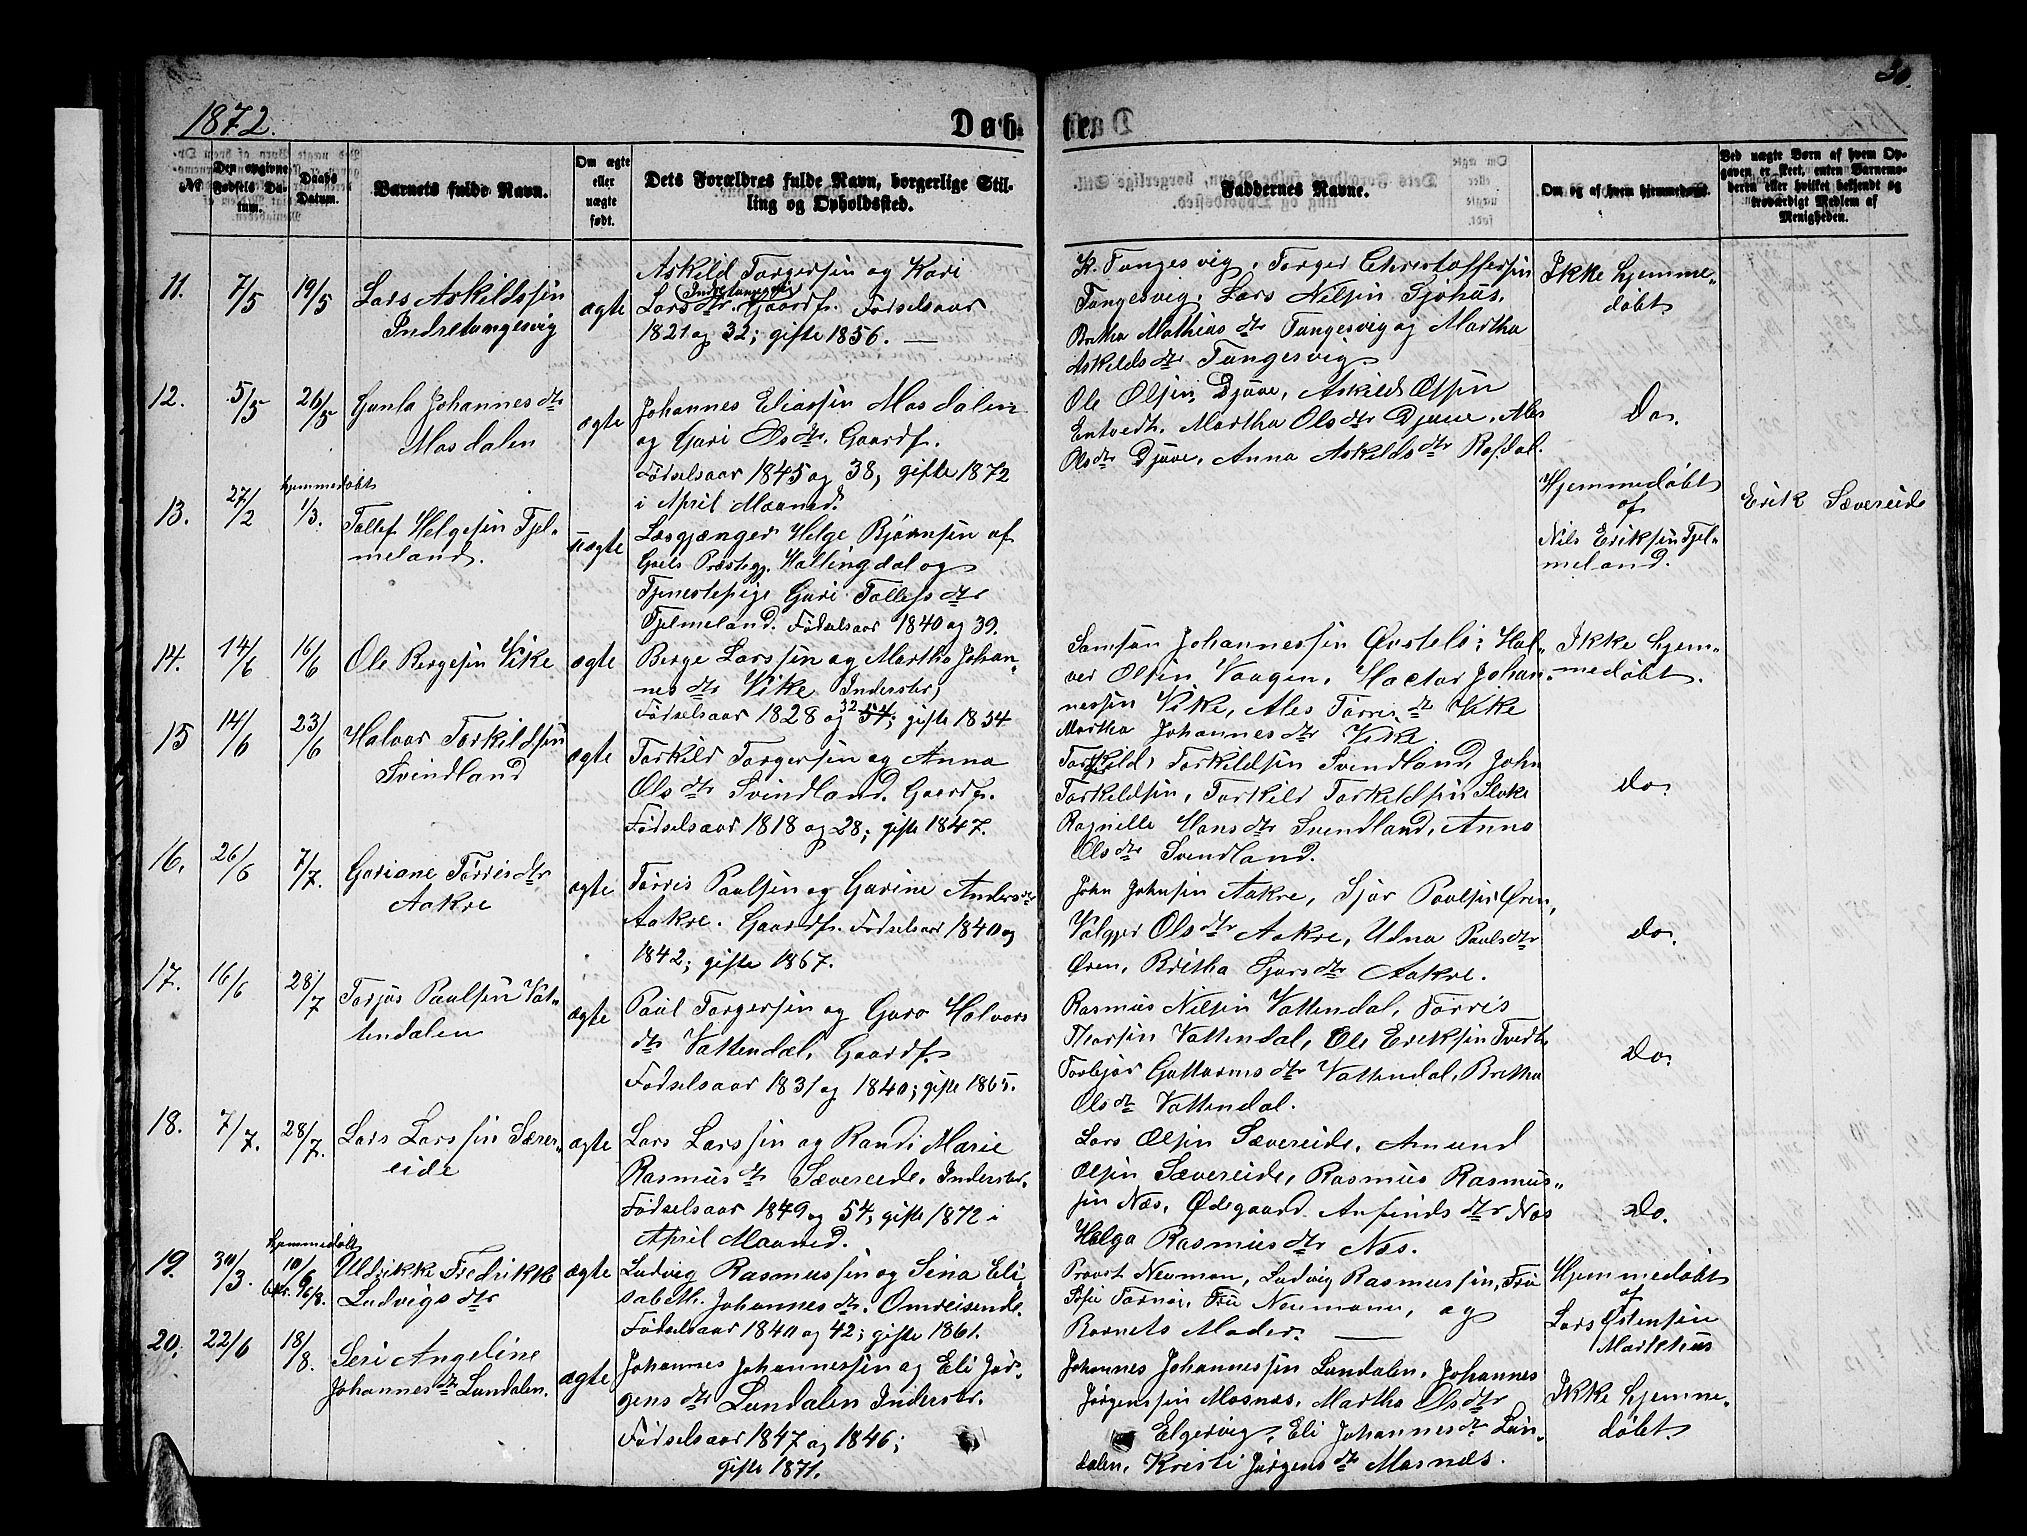 1872.
Døb-
te.
30.
№
Den opgivne Fødsels Datum.
Daabs Datum.
Barnets fulde Navn.
Om ægte eller uægte født.
Dets Forældres fulde Navn, borgerlige Stilling og Opholdssted.
Faddernes Navne.
Om og af hvem hjemmedøbt.
Ved uægte Børn af hvem Opgaven er skeet, enten Barnemoderen eller hvilket bekjendt og troværdigt Medlem af Menigheden.
11.
7/5
19/5
Lars Askildssen
Indretungesvig
ægte
Askild Torgersen og Kari
Indretungesvig
Lars dtr Gaardf. Fødselsaar
1821 og 32; gifte 1856. —
K. Tungesvig, Torger Christoffersen
Tungesvig, Lars Nilsen Sjohus,
Britha Mathias dtr Tungesvig og Martha
Askilds dtr Tungesvig
Ikke hjemme„
døbt
12.
5/5
26/5
Gunla Johannes dtr
Mosdalen
ægte
Johannes Eliassen Mosdalen
og Guri Ols dtr. Gaardf.
Fødselsaar 1845 og 38, gifte 1872
i April Maaned.
Ole Olsen Djuve, Askild Olsen
Entvedt, Martha Ols dtr Djuve, Ales
Ols dtr Djuve, Anna Askilds dtr Rosdal.
Do.
13.
27/2
hjemmedøbt
1/3.
Tollef Helgesen Fjel-
meland.
uægte
Løsgjænger Helge Bjørnsen af
Goels Præstegj. Hallingdal og
Tjenestepige Guri Tollefs dtr
Fjelmeland. Fødselsaar 1840 og 39.
Hjemmedøbt
af
Nils Eriksen Fjel„
meland.
Erik Sævereide
14.
14/6
16/6
Ole Bergesen Vike
ægte
Berge Larssen og Martha Johan„
nes dtr Vike Inderstr;
Fødselsaar 1828 og 32 54; gifte 1854
Samson Johannessen Ørstels; Hal-
vor Olsen Vaagen, Hactor Johan-
nessen Vike, Ales Torris dtr Vike
Martha Johannes dtr Vike.
Ikke hjem„
medøbt.
15
14/6
23/6
Halvor Torkildsen
Svindland
ægte
Torkild Torgersen og Anna
Ols dtr Svindland. Gaardf.
Fødselsaar 1818 og 28; gifte 1847.
Torkild Torkildsen Svendland, John
Torkildsen, Torkild Torkildsen Sloke
Ragnille Hans dtr Svendland, Anna
Ols dtr Svendland.
Do.
16.
26/6
7/7.
Goriane Torris dtr
Aakre
ægte
Torris Paulsen og Gurine Anders dtr
Aakre. Gaardf. Fødselsaar 1840 og
1842; gifte 1867.
John Johnsen Aakre, Sjur Paulsen Øren,
Valgjer Ols dtr Aakre, Udna Pauls dtr
Øren, Britha Sjurs dtr Aakre.
Do.
17.
16/6
28/7
Torjus Paulsen Vat„
tendalen
ægte
Paul Torgersen og Guro Halvors
dtr Vattendal, Gaardf.
Fødselsaar 1831 og 1840; gifte 1865.
Rasmus Nilsen Vattendal, Torris
Iversen Vattendal, Ole Eriksen Tvedt,
Torbjør Guttorms dtr Vattendal, Britha
Ols dtr Vattendal.
Do.
18.
7/7.
28/7.
Lars Larssen Sæver„
eide
ægte
Lars Larssen og Randi Marie
Rasmus dtr Sævereide. Inderstr.
Fødselsaar 1849 og 54, gifte 1872 i
April Maaned.
Lars Olsen Sævereide, Amund
Olsen Sævereide, Rasmus Rasmus„
sen Næs, Ødegaard Anfinds dtr Næs
Helga Rasmus dtr Næs.
Do.
19.
30/3.
hjemmedøbt
10/6
16/8.
Uldrikke Fredrikke
Ludvigs dtr
ægte
Ludvig Rasmussen og Sina Eli
sabeth Johannes dtr. Omreisende.
Fødselsaar 1840 og 42; gifte 1861.
Provst Neuman, Ludvig Rasmussen, Fru
Sofie Tornøe, Fru Neumann, og
Barnets Moder. —
Hjemmedøbt
af
Lars Østensen
Markhus
20.
22/6
18/8.
Seri Angeline
Johannes dtr Lundalen.
ægte
Johannes Johannessen og Eli Jør„
gens dtr Lundalen Inderstr.
Fødselsaar 1847 og 1846;
gifte 1871.
Johannes Johannessen Lundalen, Johannes
Jørgenssen Mosnæs, Martha Ols dtr
Elgervig, Eli Johannes dtr Lun„
dalen, Kristi Jørgens dtr Mosnæs.
Ikke hjemme„
døbt.